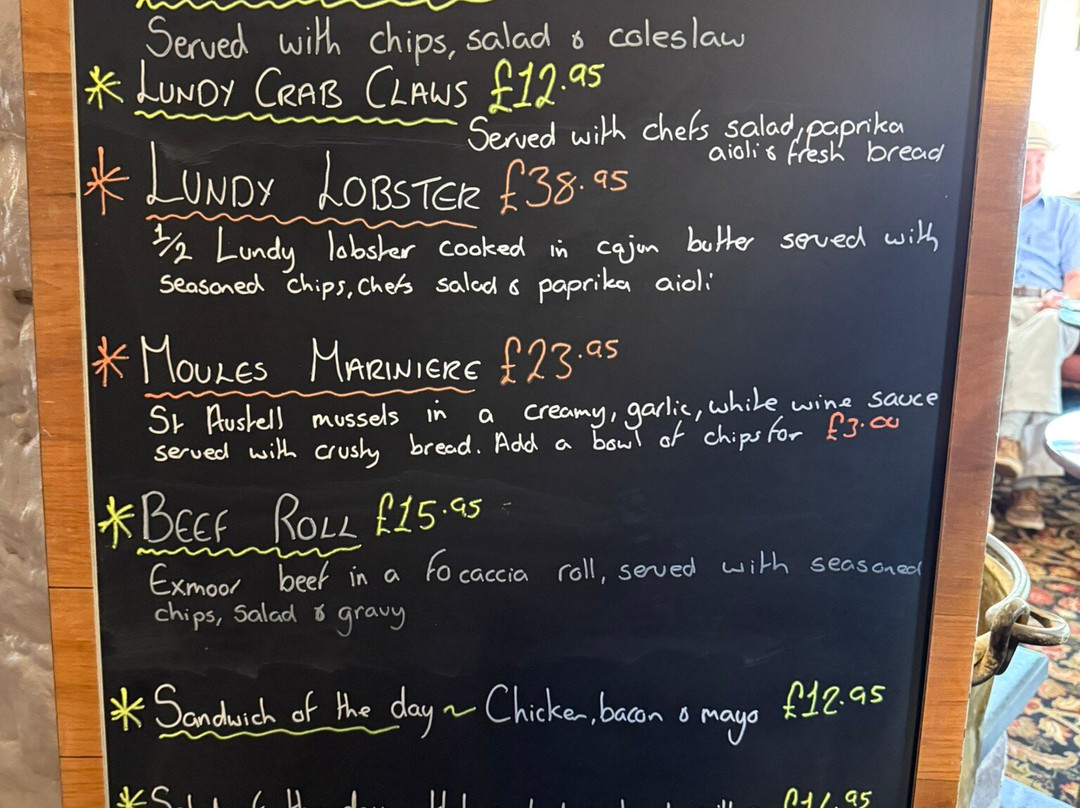 Served with chips, salad & coleslaw
* LUNDY CRAB CLAWS £12.95
Served with chefs salad, paprika
aioli & fresh bread
* LUNDY LOBSTER £38.95
1/2 Lundy lobster cooked in cajun butter served with
seasoned chips, chefs salad & paprika aioli
* MOULES MARINIERE £23.95
St Austell mussels in a creamy, garlic, white wine sauce
served with crusty bread. Add a bowl of chips for £3.00
* BEEF ROLL £15.95
Exmoor beef in a focaccia roll, served with seasoned
chips, salad & gravy
* Sandwich of the day ~ Chicken, bacon & mayo £12.95